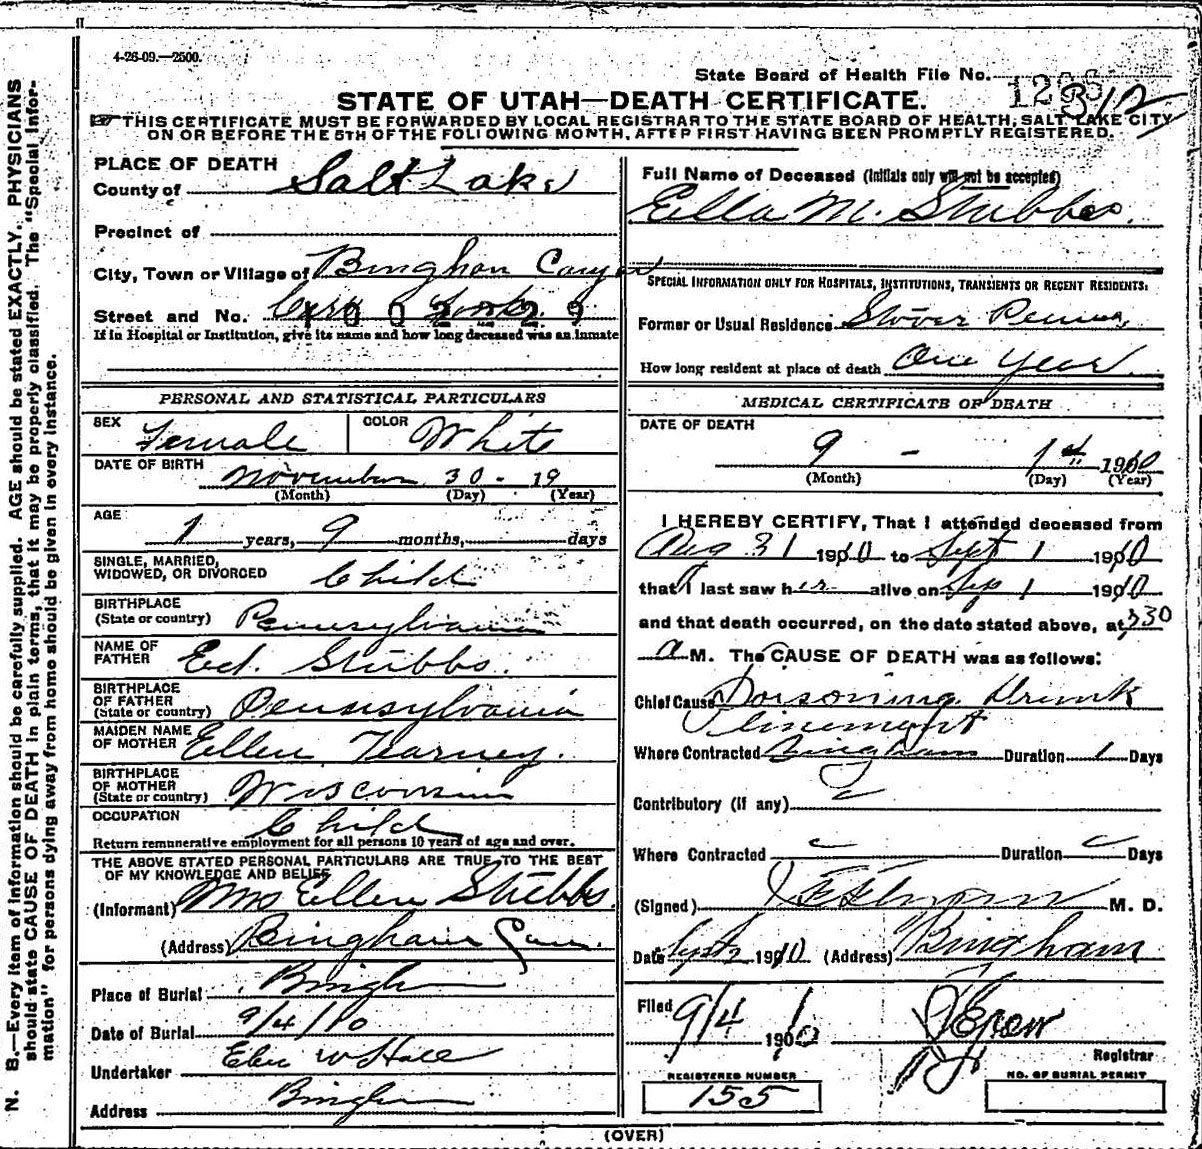 4-26-09.—2500.
State Board of Health File No.
312
STATE OF UTAH—DEATH CERTIFICATE.
THIS CERTIFICATE MUST BE FORWARDED BY LOCAL REGISTRAR TO THE STATE BOARD OF HEALTH, SALT LAKE CITY
ON OR BEFORE THE 5TH OF THE FOLLOWING MONTH, AFTER FIRST HAVING BEEN PROMPTLY REGISTERED.
N. B.—Every item of information should be carefully supplied. AGE should be stated EXACTLY. PHYSICIANS
should state CAUSE OF DEATH in plain terms, that it may be properly classified. The "Special Infor-
mation" for persons dying away from home should be given in every instance.
PLACE OF DEATH
County of Salt Lake
Precinct of
City, Town or Village of Bingham Canyon
Street and No.
If in Hospital or Institution, give its name and how long deceased was an inmate
PERSONAL AND STATISTICAL PARTICULARS
SEX Female COLOR White
DATE OF BIRTH November 30 - 19
(Month) (Day) (Year)
AGE
1 years, 9 months, days
SINGLE, MARRIED,
WIDOWED, OR DIVORCED Child
BIRTHPLACE
(State or country) Pennsylvania
NAME OF
FATHER Ed. Stubbs.
BIRTHPLACE
OF FATHER
(State or country) Pennsylvania
MAIDEN NAME
OF MOTHER Ellen Tearney.
BIRTHPLACE
OF MOTHER
(State or country) Wisconsin
OCCUPATION
Child
Return remunerative employment for all persons 10 years of age and over.
THE ABOVE STATED PERSONAL PARTICULARS ARE TRUE TO THE BEST
OF MY KNOWLEDGE AND BELIEF
(Informant) Mrs Ellen Stubbs.
(Address) Bingham Can.
Place of Burial Bingham
Date of Burial 9/4/10
Undertaker W Hall
Address Bingham
Full Name of Deceased (Initials only will not be accepted)
Ella M. Stubbs.
SPECIAL INFORMATION ONLY FOR HOSPITALS, INSTITUTIONS, TRANSIENTS OR RECENT RESIDENTS:
Former or Usual Residence Penna,
How long resident at place of death One Year
MEDICAL CERTIFICATE OF DEATH
DATE OF DEATH
9 - 1st 1910
(Month) (Day) (Year)
I HEREBY CERTIFY, That I attended deceased from
Aug 31 1910 to Sept 1 1910
that I last saw her alive on Sep 1 1910
and that death occurred, on the date stated above, at 330
a M. The CAUSE OF DEATH was as follows:
Chief Cause Poisoning. Drunk
Where Contracted Bingham Duration 1 Days
Contributory (if any)
Where Contracted Duration Days
(Signed) M. D.
Date 1910 (Address) Bingham
Filed 9/4 1910
Registrar
REGISTERED NUMBER
155
NO. OF BURIAL PERMIT
(OVER)